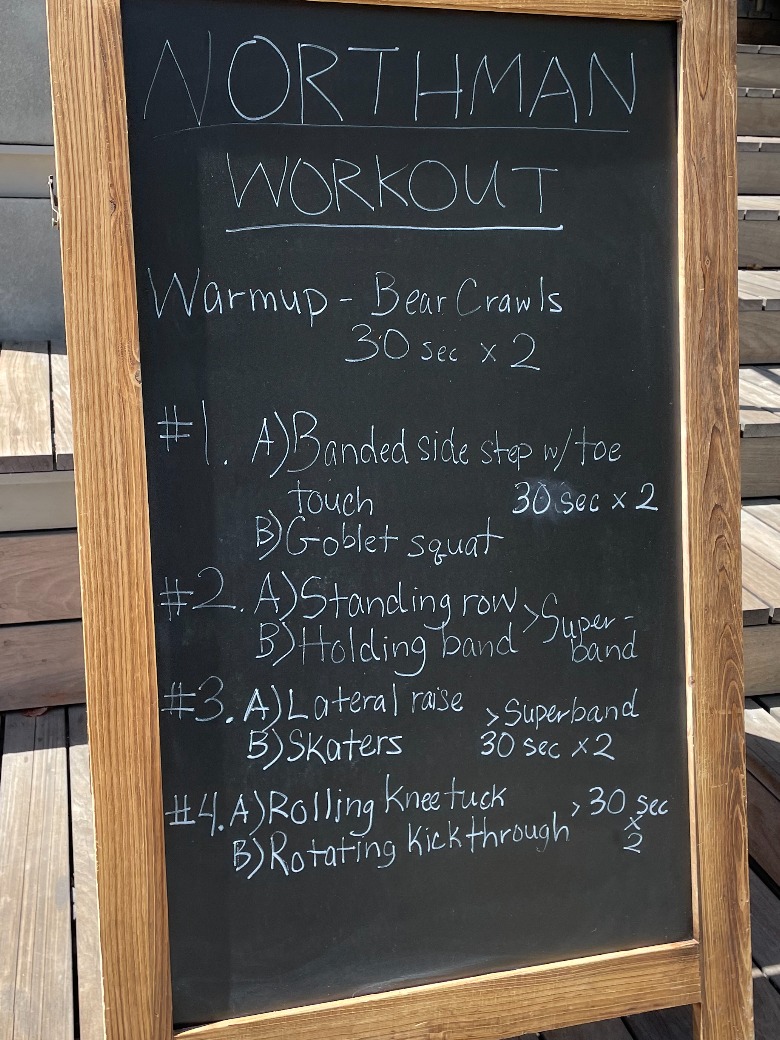 NORTHMAN
WORKOUT
Warmup - Bear Crawls
30 sec x 2
#1. A) Banded side step w/ toe
touch 30 sec x 2
B) Goblet squat
#2. A) Standing row > Super-
B) Holding band band
#3. A) Lateral raise > Superband
B) Skaters 30 sec x 2
#4. A) Rolling knee tuck > 30 sec
x
B) Rotating kickthrough 2